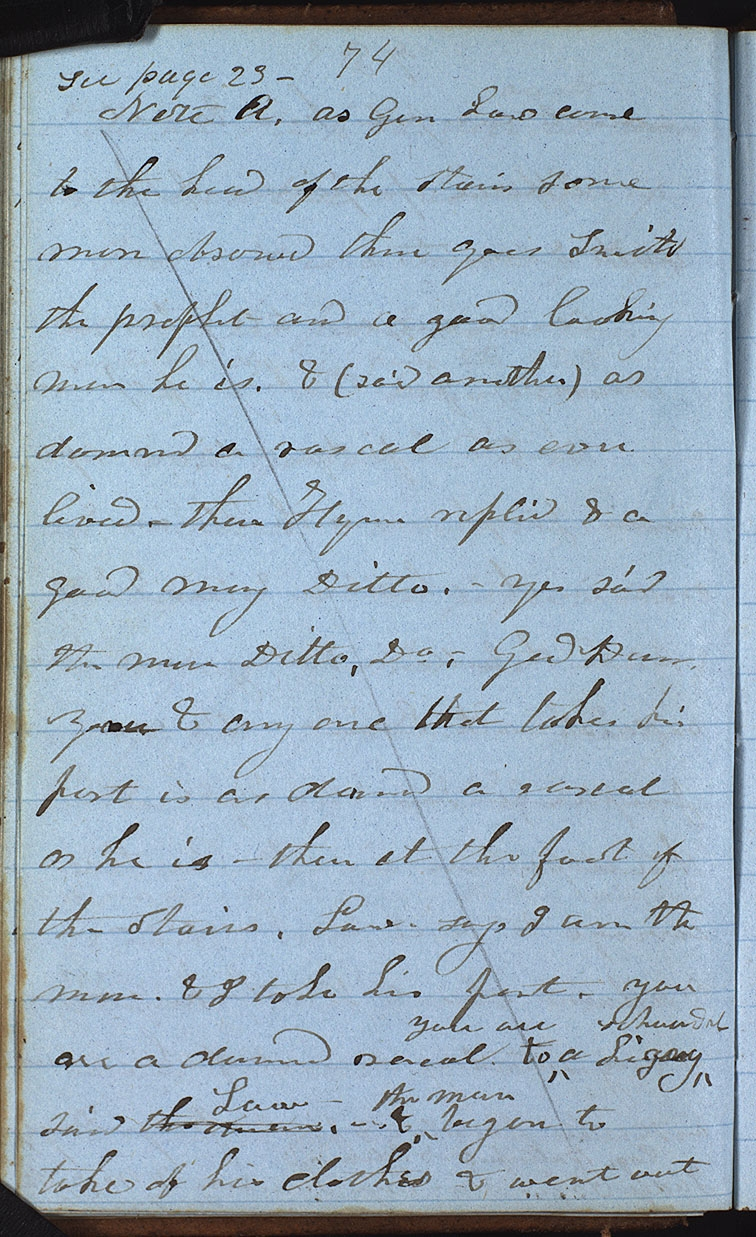 74
see page 23 –
Note A. as Gen Law come
to the head of the stairs some
man observed there goes Smith
the prophet and a good looking
man he is. & (said another) as
damnd a rascal as ever
lived – then Hyrum replid & a
good many Ditto. – yes said
the man Ditto, Do, – God Dam
you & any one that takes his
part is as damd a rascal
as he is – then at the foot of
the stairs. Law says I am the
man. & I take his part – you
you are
are a damnd rascal. to a
Law – the man
said the man. – & began to
take of his clothes & went out